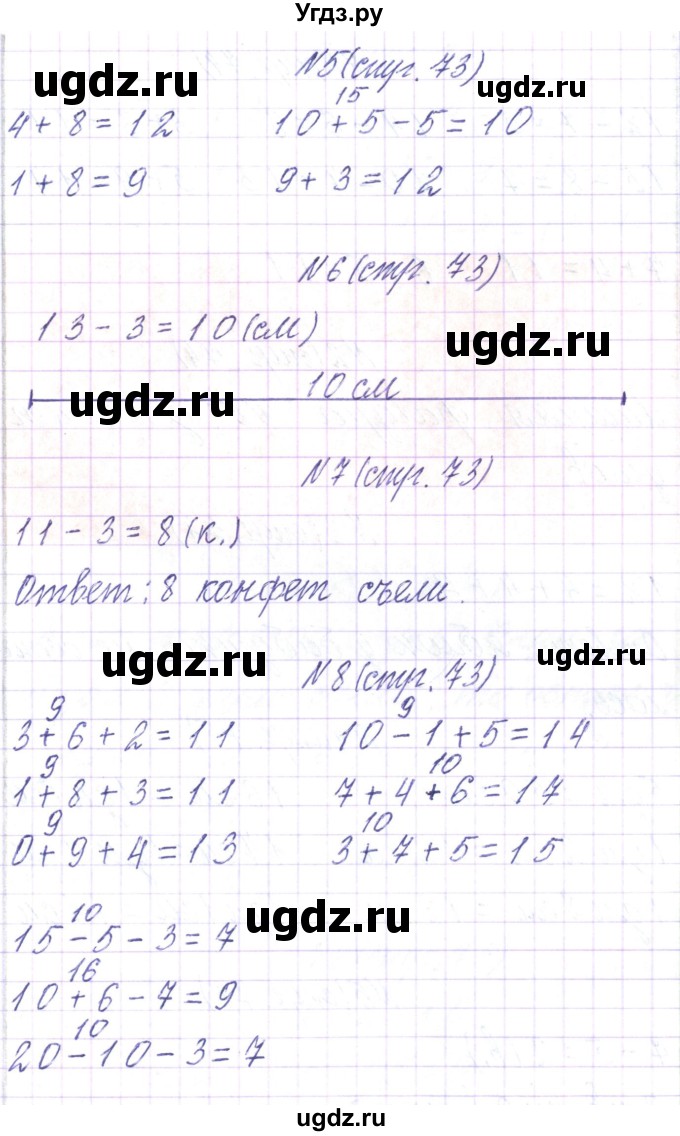 Угдз.ру
№5(стр. 73)
ugdz.ru ugdz.ru
15
4+8=12 10+5-5=10
1+8=9 9+3=12
№6(стр. 73)
13-3=10(см)
ugdz.ru
10 см
ugdz.ru
№7(стр. 73)
11-3=8(к.)
Ответ: 8 конфет съели.
ugdz.ru ugdz.ru
№8(стр. 73)
9 9
3+6+2=11 10-1+5=14
9 10
1+8+3=11 7+4+6=17
9 10
0+9+4=13 3+7+5=15
ugdz.ru
10
15-5-3=7
16
10+6-7=9
10
20-10-3=7
ugdz.ru